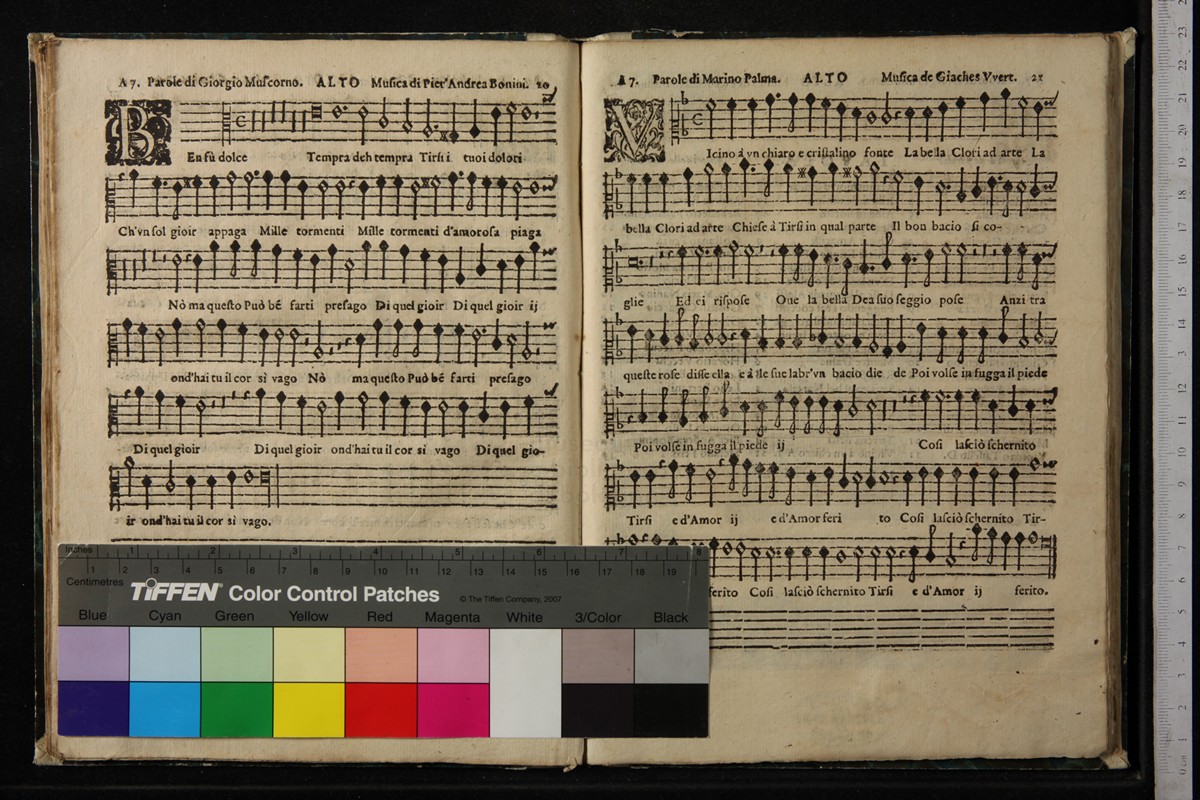 A 7. Parole di Giorgio Muſcorno. ALTO Muſica di Pier'Andrea Bonini. 20
B
En fù dolce Tempra deh tempra Tirſi i tuoi dolori
Ch'vn ſol gioir appaga Mille tormenti Mille tormenti d'amoroſa piaga
Nò ma queſto Può bé farti preſago Di quel gioir Di quel gioir ij
ond'hai tu il cor sì vago Nò ma queſto Può bé farti preſago
Di quel gioir Di quel gioir ond'hai tu il cor sì vago Di quel gio-
ir ond'hai tu il cor sì vago.
A 7. Parole di Marino Palma. ALTO Muſica de Giaches Vvert. 21
V
Icino à vn chiaro e criſtalino fonte La bella Clori ad arte La
bella Clori ad arte Chieſe à Tirſi in qual parte Il bon bacio ſi co-
glie Ed ei riſpoſe Oue la bella Dea ſuo ſeggio poſe Anzi tra
queſte roſe diſſe ella e à lle ſue labr'vn bacio die de Poi volſe in fugga il piede
Poi volſe in fugga il piede ij Coſi laſciò ſchernito
Tirſi e d'Amor ij e d'Amor feri to Coſi laſciò ſchernito Tir-
ferito Coſi laſciò ſchernito Tirſi e d'Amor ij ferito.
Inches 1 2 3 4 5 6 7 8
1 2 3 4 5 6 7 8 9 10 11 12 13 14 15 16 17 18 19
Centimetres
TIFFEN® Color Control Patches © The Tiffen Company, 2007
Blue Cyan Green Yellow Red Magenta White 3/Color Black